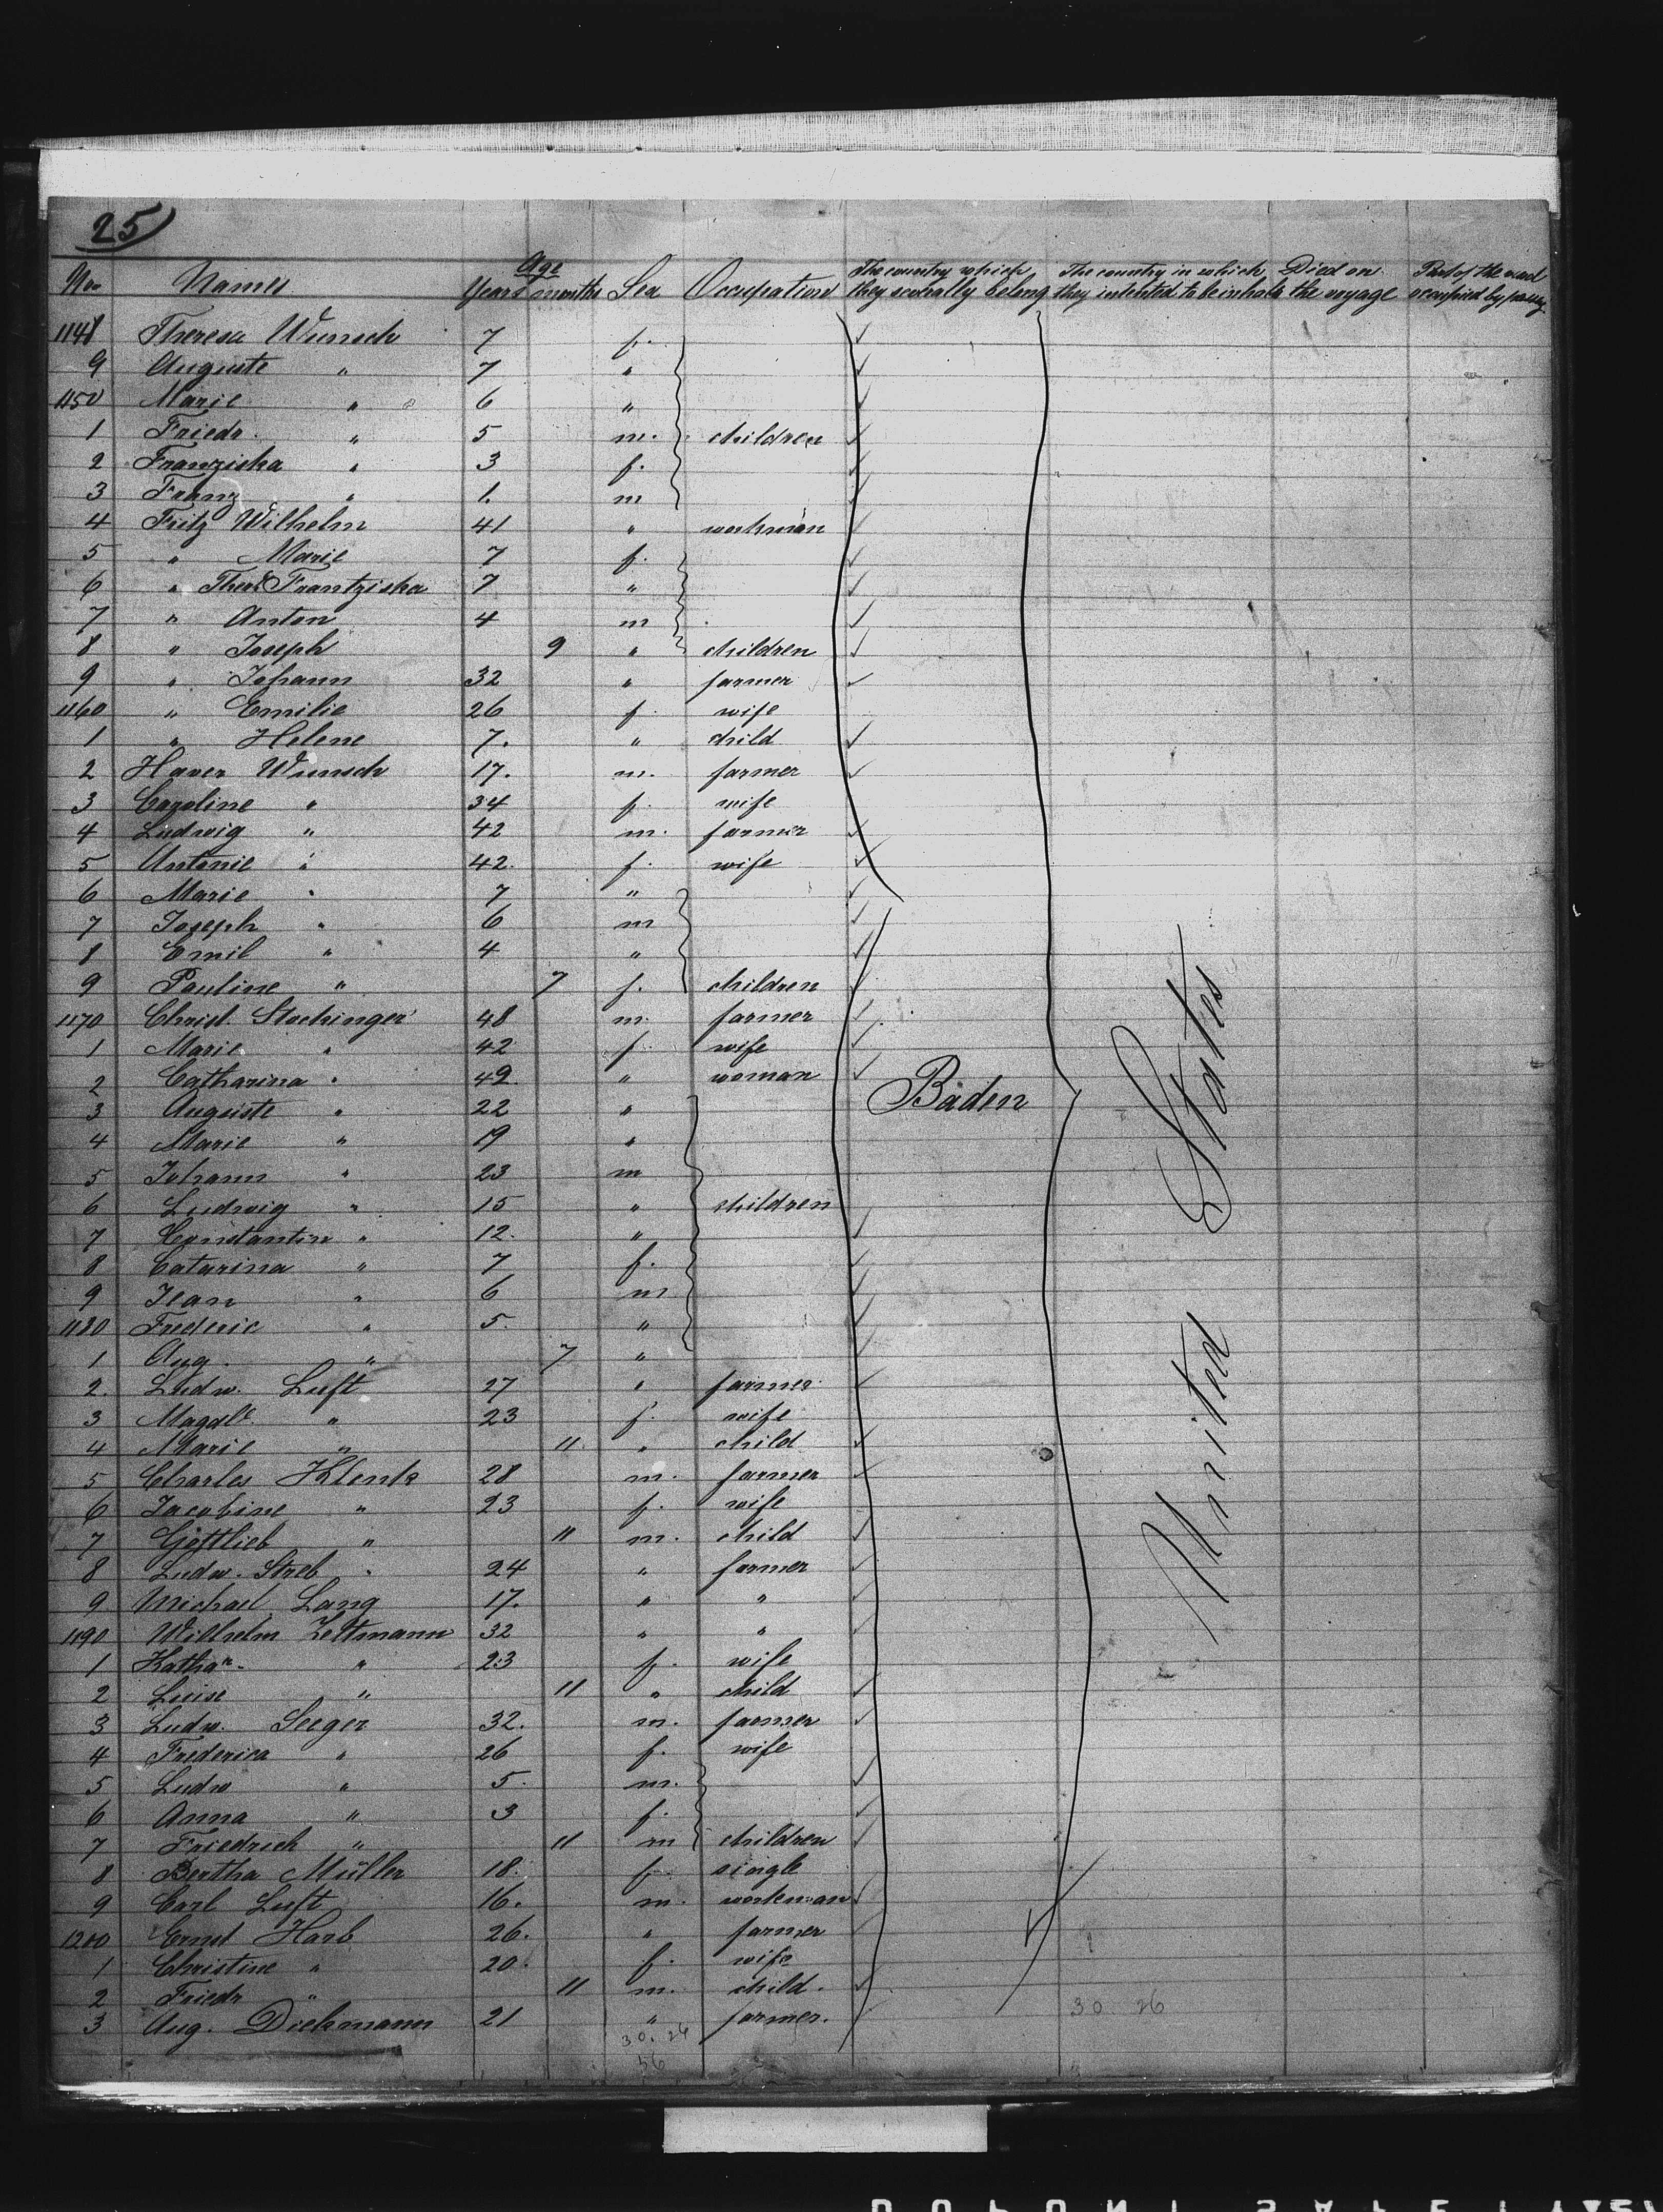 25
No Names Age Years months Sex Occupation The country which they severally belong The country in which they intented to be inhab. Died on the voyage Part of the vessel occupied by passeng.
1148 Theresa Wunsch 7 f.
9 Auguste " 7 "
1150 Marie " 6 "
1 Friedr. " 5 m. children
2 Franziska " 3 f.
3 Franz " 1. m
4 Fritz Wilhelm 41 " workman
5 " Marie 7 f.
6 " Frantziska 7 "
7 " Anton 4 m
8 " Joseph 9 " children
9 " Johann 32 " farmer
1160 " Emilie 26 f. wife
1 " Helene 7. " child
2 Haver Wunsch 17. m. farmer
3 Caroline " 34 f. wife
4 Ludwig " 42 m. farmer
5 Antonie " 42. f. wife
6 Marie " 7 "
7 Joseph " 6 m
8 Emil " 4 "
9 Pauline " 7 f. children
1170 Christ. Stockinger 48 m. farmer
1 Marie " 42 f. wife
2 Catharina " 49 " woman
Baden
3 Auguste " 22 "
4 Marie " 19 "
5 Johann " 23 m
6 Ludwig " 15 " children
7 Constantin " 12. "
8 Catarina " 7 f.
9 Jean " 6 m
1180 Frederic " 5. "
1 Aug. " 7 "
2. Ludw. Luft 27 " farmer
3 Magdl. " 23 f. wife
4 Marie " 11. " child
5 Charles Klenk 28 m. farmer
6 Jacobine " 23 f. wife
7 Gottlieb " 11 m. child
8 Ludw. Streb " 24 " farmer
9 Michael Lang 17. " "
1190 Wilhelm Zeltmann 32 " "
1 Kathar. " 23 f. wife
2 Luise " 11 " child
3 Ludw. Seeger 32. m. farmer
4 Frederica " 26 f. wife
5 Ludw " 5. m.
6 Anna " 3 f.
7 Friedrich " 11 m children
8 Bertha Müller 18. f. single
9 Carl Luft 16. m. workman
1200 Ernst Harb 26. " farmer
1 Christine " 20. f. wife
2 Friedr " 11 m. child.
3 Aug. Diekmann 21 " farmer.
United States
30. 26
30. 26
56